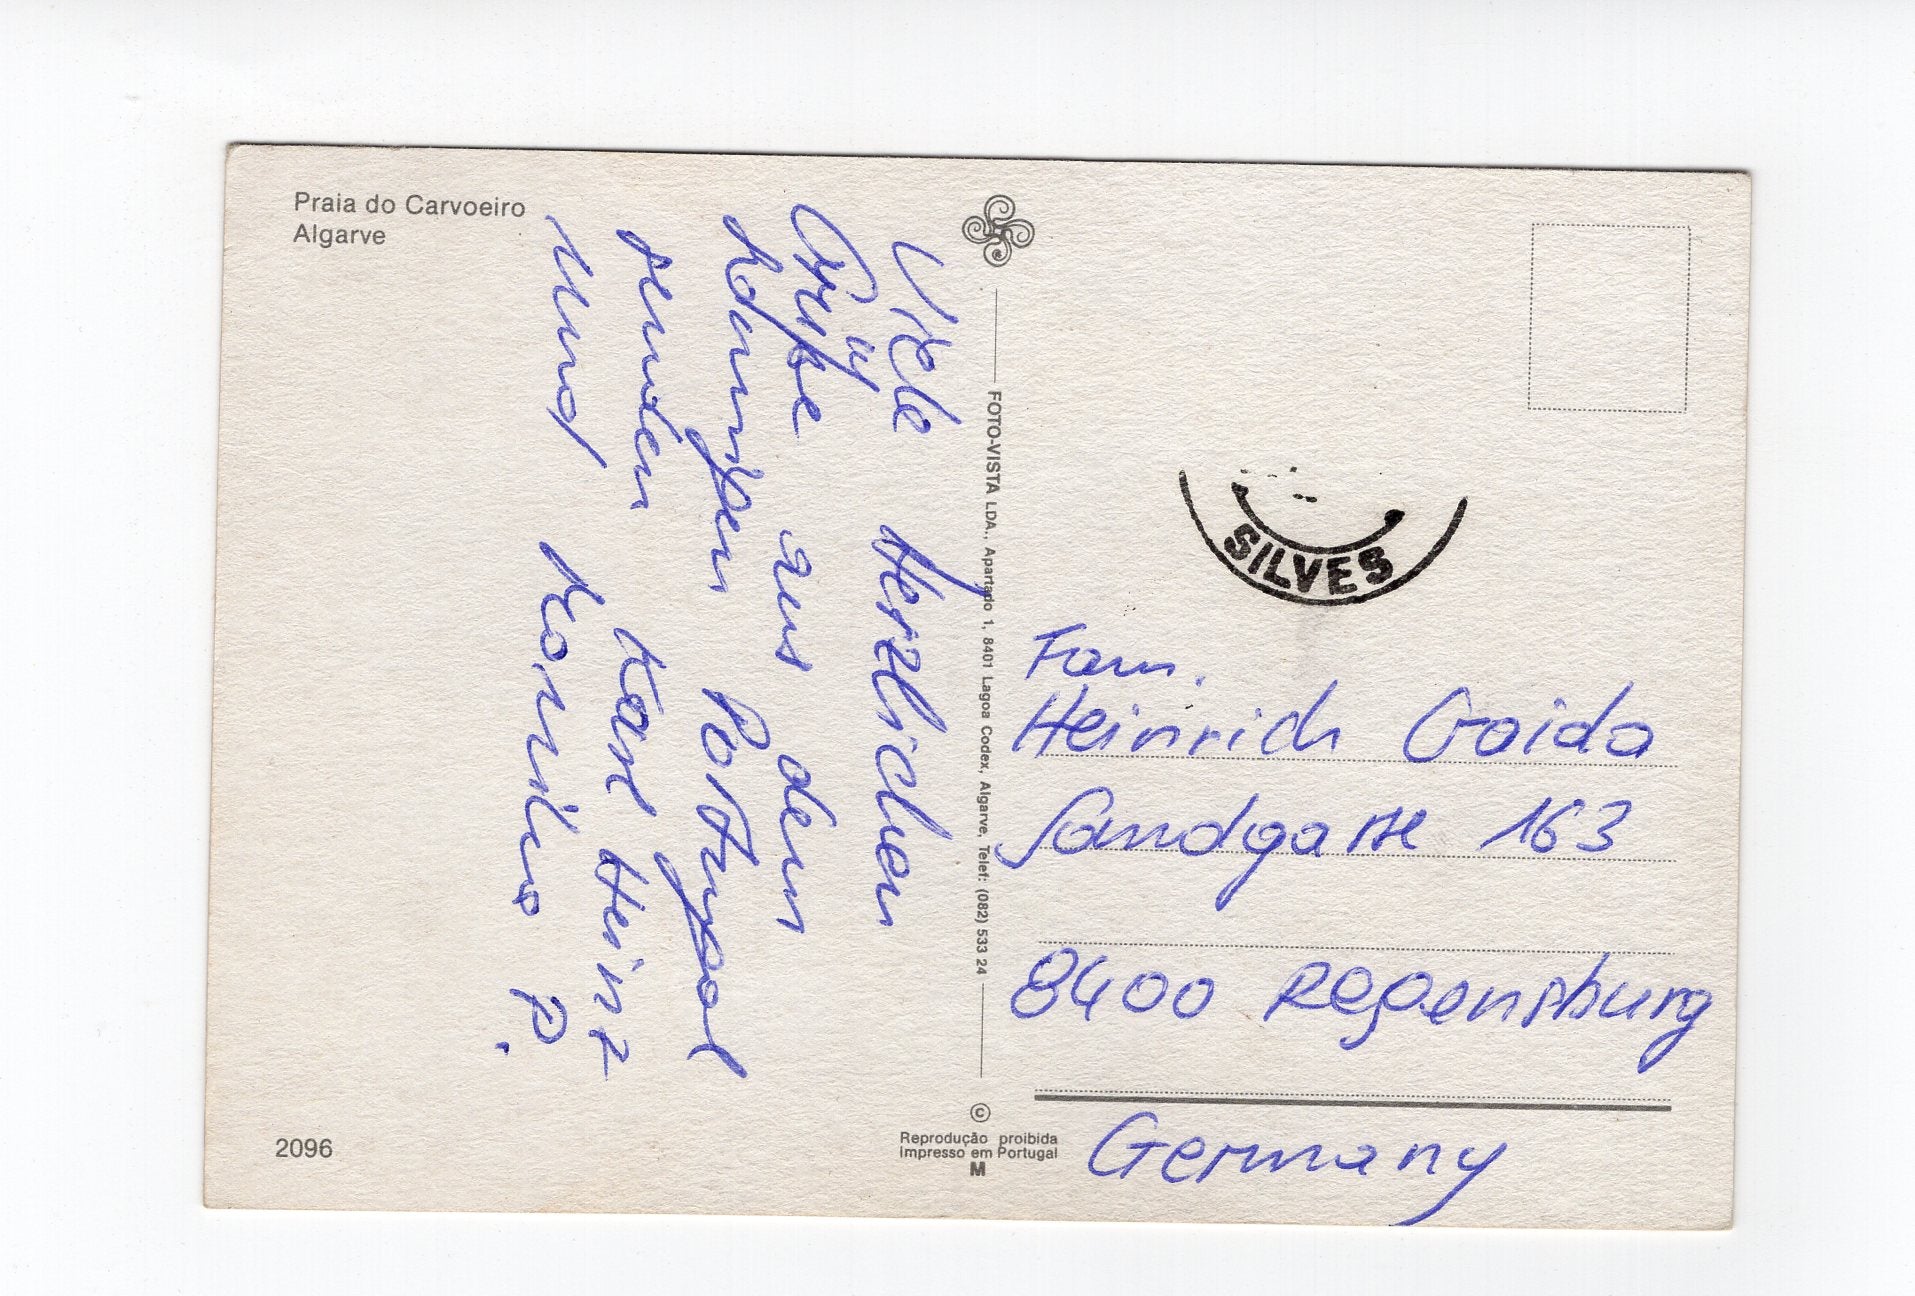 Praia do Carvoeiro
Algarve
Viele Herzlichen
Grüße aus dem
sonnigen Portugal
senden Karl Heinz
und Kornélia P.
2096
FOTO-VISTA LDA., Apartado 1, 8401 Lagoa Codex, Algarve, Telef: (082) 533 24
©
Reprodução proibida
Impresso em Portugal
M
SILVES
Fam.
Heinrich Gaida
Sandgasse 163
8400 Regensburg
Germany